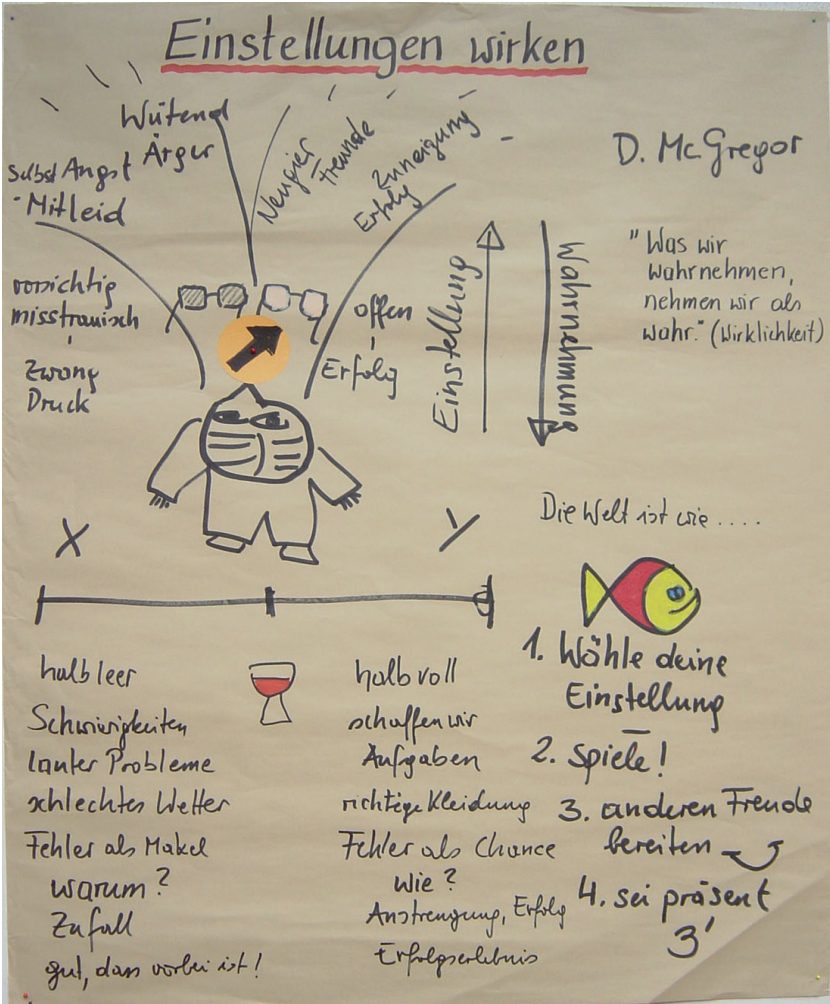 Einstellungen wirken
Wütend
Ärger
selbst Angst
-Mitleid
Neugier
Freunde
Zuneigung
Erfolg
D. McGregor
vorsichtig
misstrauisch
Zwang
Druck
offen
Erfolg
Einstellung
Wahrnehmung
"Was wir
wahrnehmen,
nehmen wir als
wahr." (Wirklichkeit)
X
Y
Die Welt ist wie ....
halb leer
Schwierigkeiten
lauter Probleme
schlechtes Wetter
Fehler als Makel
warum?
Zufall
gut, dass vorbei ist!
halb voll
schaffen wir
Aufgaben
richtige Kleidung
Fehler als Chance
Wie?
Anstrengung, Erfolg
Erfolgserlebnis
1. Wähle deine
Einstellung
2. Spiele!
3. anderen Freude
bereiten
4. sei präsent
3'